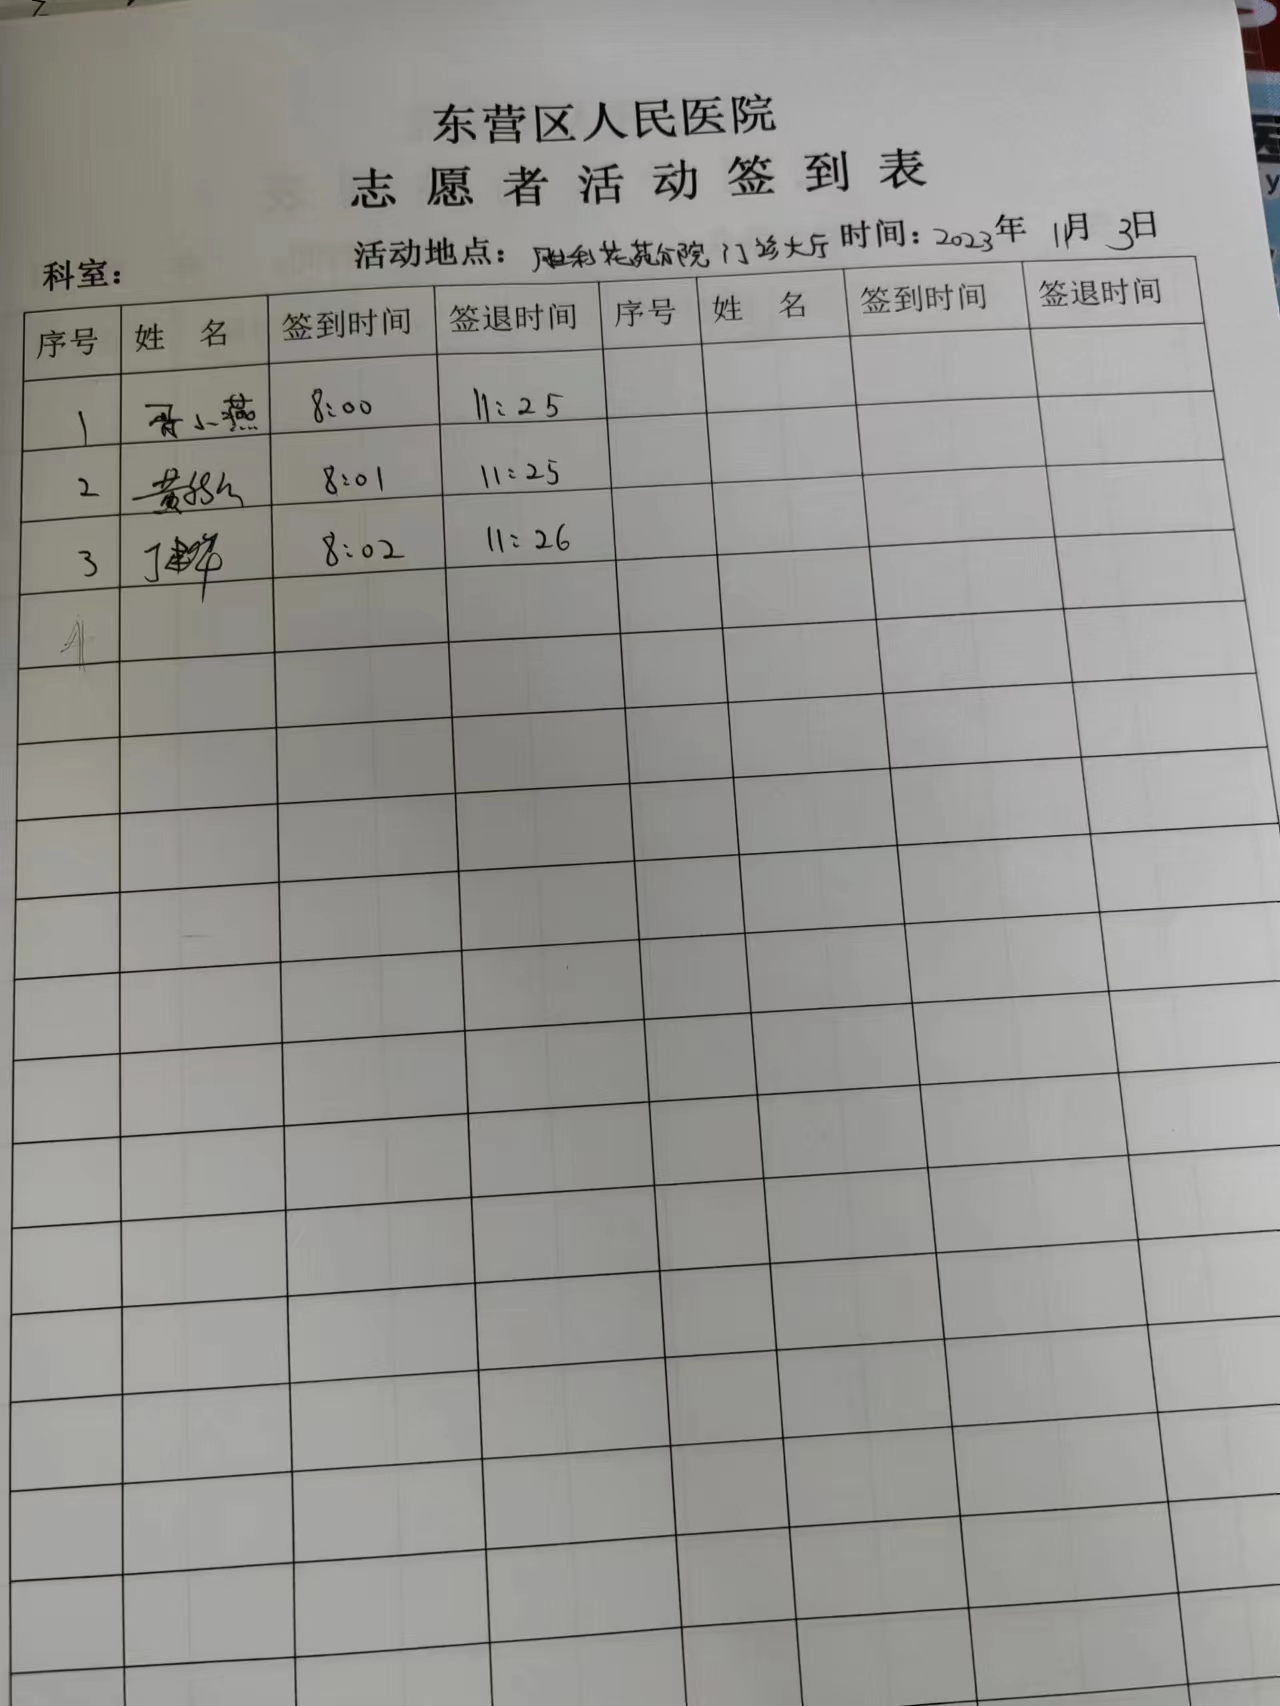 东营区人民医院
志愿者活动签到表
科室： 活动地点：胜利花苑分院 门诊大厅 时间：2023年 11月 3日
序号 姓 名 签到时间 签退时间 序号 姓 名 签到时间 签退时间
1 小燕 8:00 11:25
2 黄 8:01 11:25
3 丁建华 8:02 11:26
4